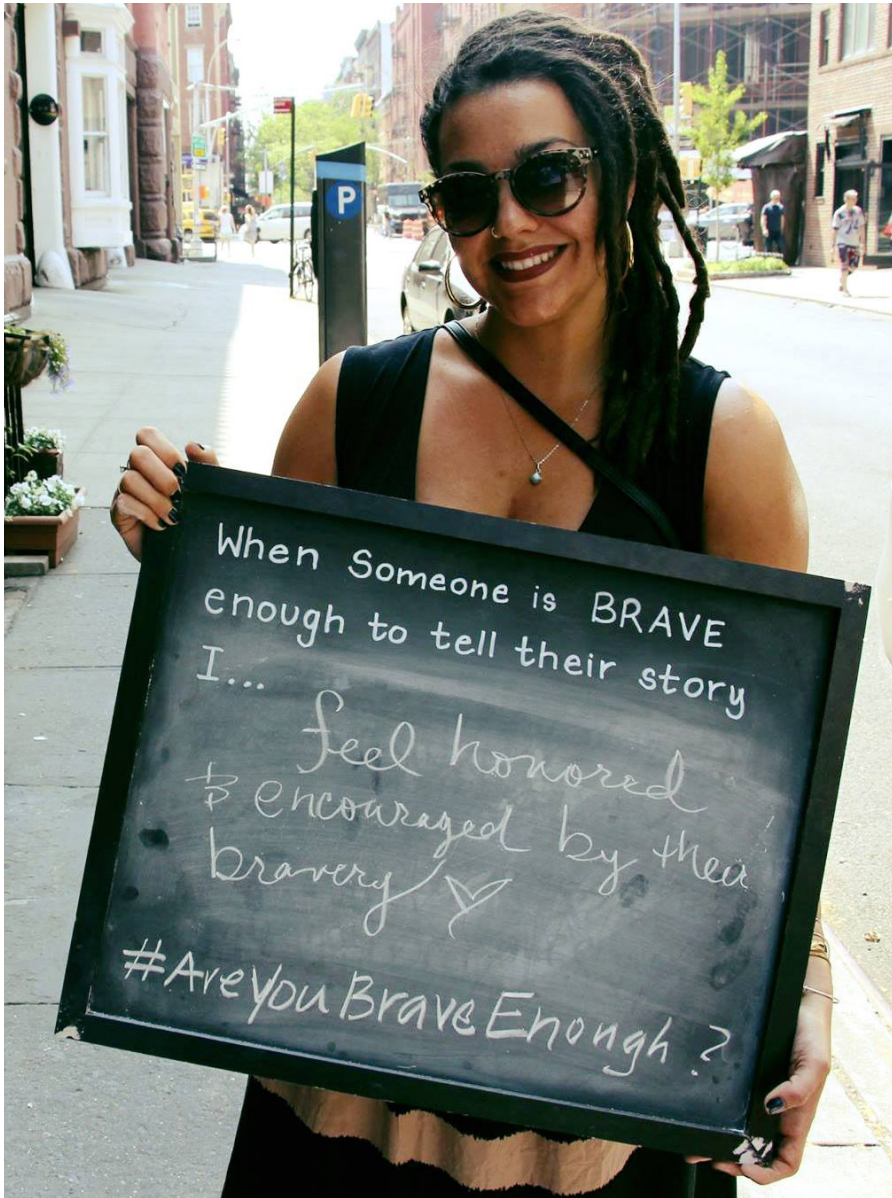 P
When Someone is BRAVE
enough to tell their story
I...
feel honored
& encouraged by their
bravery
#AreYouBraveEnough?